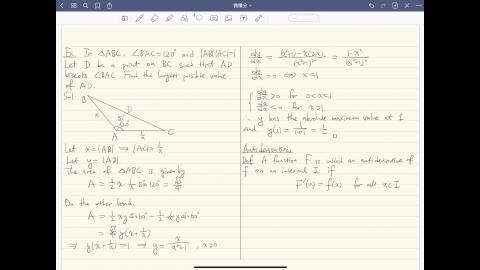 Ex. In △ABC, ∠BAC=120° and |AB||AC|=1
Let D be a point on BC such that AD
bisects ∠BAC. Find the largest possible value
of AD.
Sol:
B
D
x
y
60°
A
1/x
C
Let x=|AB| ⟹ |AC|=1/x
Let y=|AD|
The area of △ABC is given by
A = 1/2 x · 1/x sin120° = √3/4
On the other hand,
A = 1/2 xy sin60° + 1/2 · 1/x y sin60°
= √3/4 y(x+1/x)
⟹ y(x+1/x)=1 ⟹ y = x/(x²+1), x>0
dy/dx = ((x²+1)-x(2x))/(x²+1)² = (1-x²)/(x²+1)²
dy/dx = 0 ⟺ x=1
{ dy/dx > 0 for 0<x<1
dy/dx < 0 for x>1
∴ y has the absolute maximum value at 1
and y(1) = 1/(1+1) = 1/2 □
Antiderivatives
Def A function F is called an antiderivative of
f on an interval I if
F'(x) = f(x) for all x∈I.